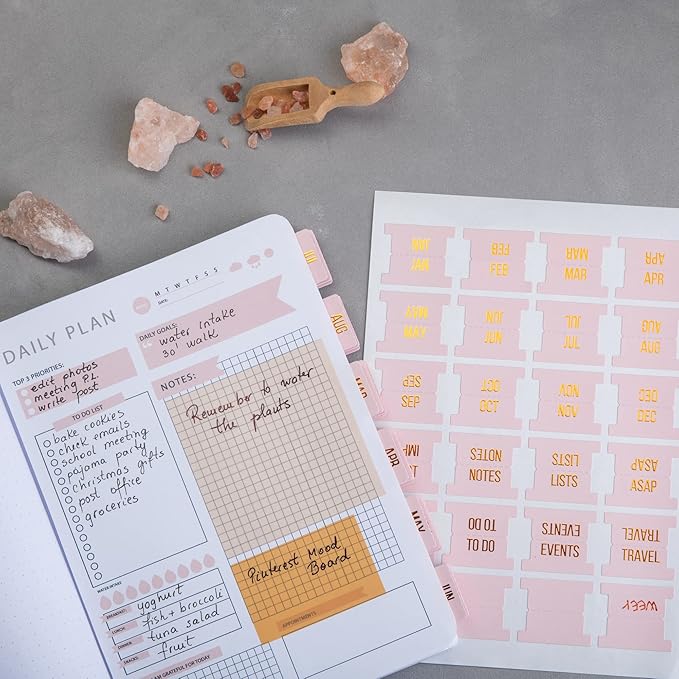 DAILY PLAN
M T W T F S S
DATE:
TOP 3 PRIORITIES:
edit photos
meeting P.L
write post
DAILY GOALS:
water intake
30' walk
TO DO LIST
bake cookies
check emails
school meeting
pajama party
christmas gifts
post office
groceries
NOTES:
Remember to water
the plants
Pinterest Mood
Board
APPOINTMENTS
WATER INTAKE
BREAKFAST: yoghurt
LUNCH: fish + broccoli
DINNER: tuna salad
SNACKS: fruit
AM GRATEFUL FOR TODAY
AUG
MAR
APR
MAY
JUN
JAN FEB MAR APR
JAN FEB MAR APR
MAY JUN JUL AUG
MAY JUN JUL AUG
SEP OCT NOV DEC
SEP OCT NOV DEC
NOTES LISTS ASAP
NOTES LISTS ASAP
TO DO EVENTS TRAVEL
TO DO EVENTS TRAVEL
WEEK